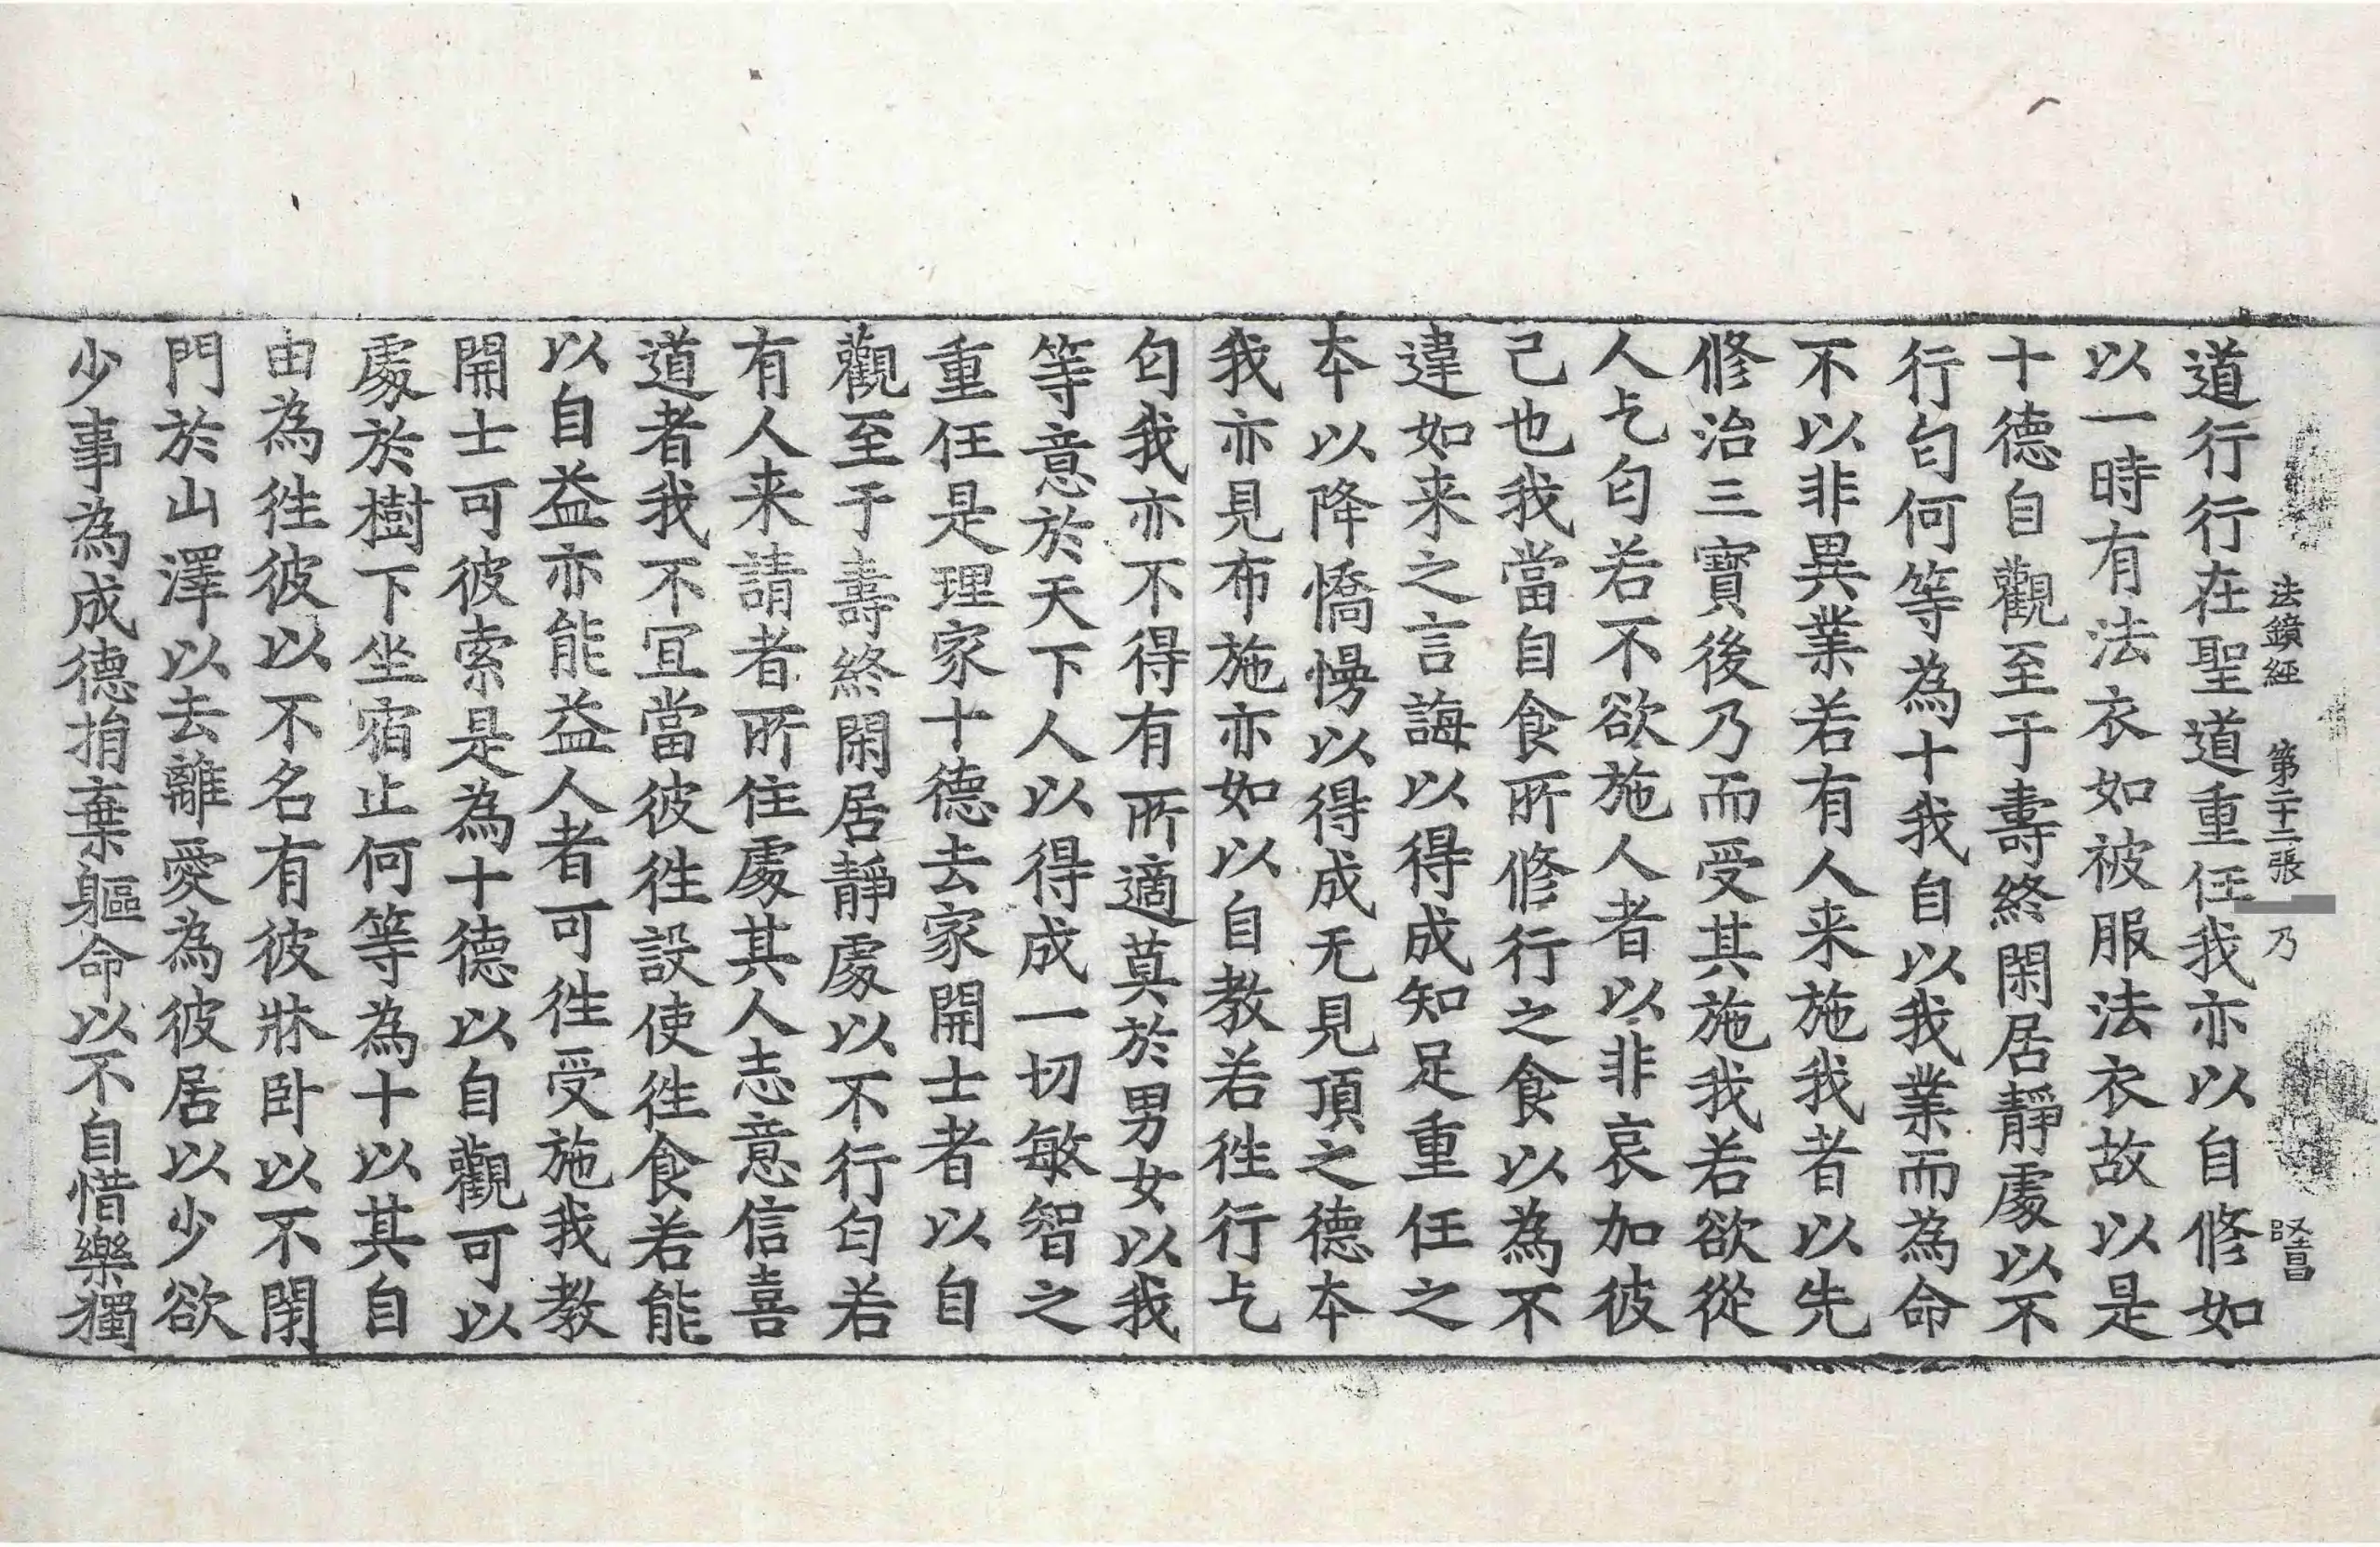 法鏡經 第二十二張 乃 堅昌
道行行在聖道重任我亦以自修如
以一時有法衣如被服法衣故以是
十德自觀至于壽終閑居靜處以不
行匃何等為十我自以我業而為命
不以非異業若有人来施我者以先
修治三寶後乃而受其施我若欲從
人乞匃若不欲施人者以非哀加彼
己也我當自食所修行之食以為不
違如来之言誨以得成知足重任之
本以降憍慢以得成无見頂之德本
我亦見布施亦如以自教若往行乞
匃我亦不得有所適莫於男女以我
等意於天下人以得成一切敏智之
重任是理家十德去家開士者以自
觀至于壽終閑居靜處以不行匃若
有人来請者所住處其人志意信喜
道者我不冝當彼往設使往食若能
以自益亦能益人者可往受施我教
開士可彼索是為十德以自觀可以
處於樹下坐宿止何等為十以其自
由為往彼以不名有彼牀卧以不閉
門於山澤以去離愛為彼居以少欲
少事為成德捐棄軀命以不自惜樂獨